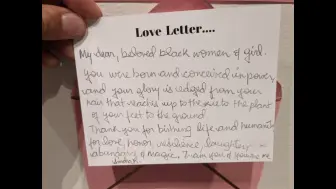 Love Letter....
My dear, beloved black women of girl.
you were born and conceived in power
and your glory is edged from your
hair that reaches up to the to the plant
of your feet to the ground.
Thank you for birthing life and humanity
for love, honor, resilience, laughter
abundance of magic. I am you